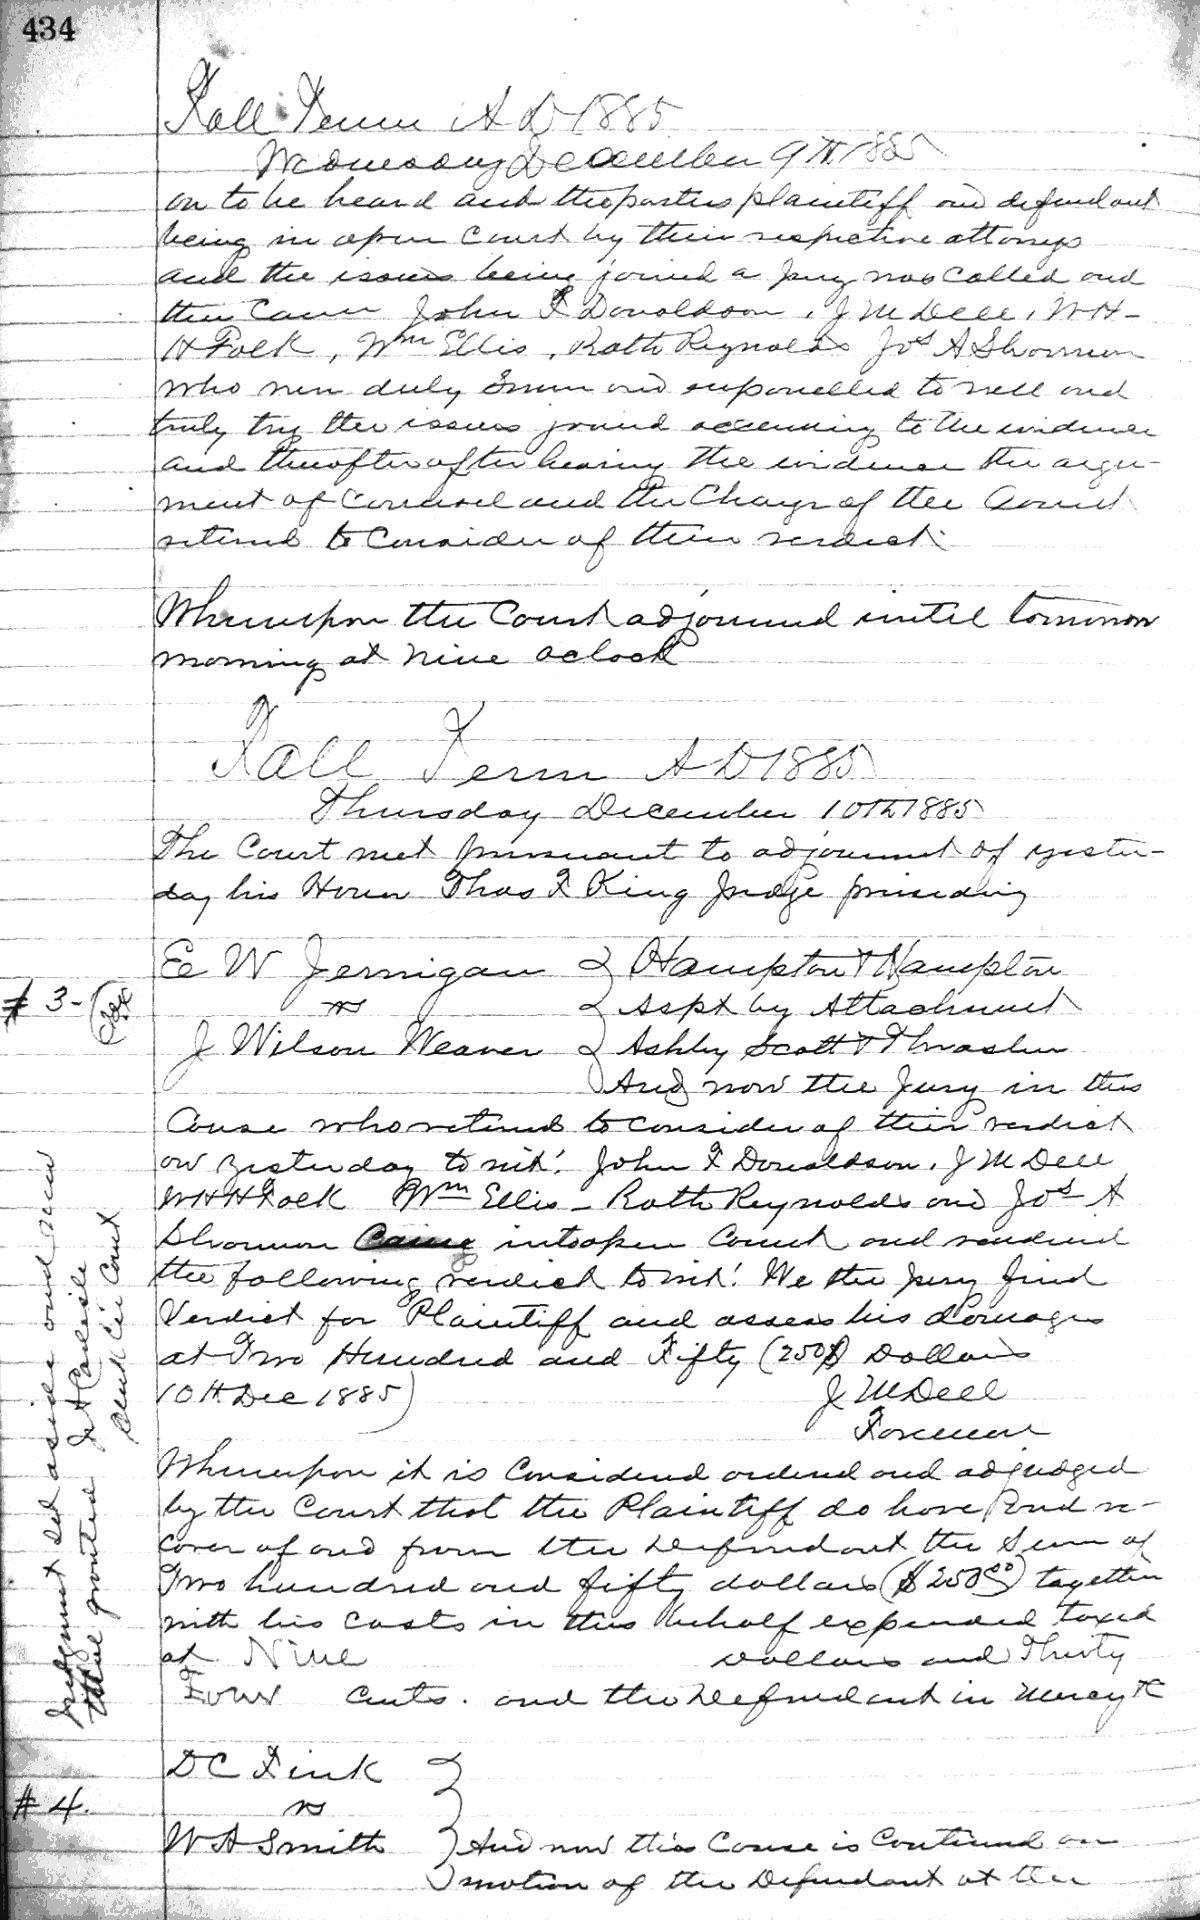 434
Fall Term A D 1885
Wednesday December 9th 1885
on to be heard and the parties plaintiff and defendant
being in open Court by their respective attorneys
and the issues being joined a jury was called and
then Came John F Donaldson, J M Dell, W H
H Folk, Wm Ellis, Rath Reynolds Jos A Shannon
who were duly Sworn and empanelled to well and
truly try the issues joined according to the evidence
and thereafter after hearing the evidence the argu-
ment of Counsel and the Charge of the Court
retired to Consider of their verdict.
Whereupon the Court adjourned until tomorrow
morning at nine oclock
Fall Term A D 1885
Thursday December 10th 1885
The Court met pursuant to adjournmt of yester-
day his Honor Thos F King Judge presiding
E W Jernigan } Hampton & Hampton
# 3-
vs } Aspt by Attachment
J Wilson Weaver } Ashby Scott & Thrasher
And now the Jury in this
Cause who retired to consider of their verdict
on yesterday to wit: John F Donaldson, J M Dell
W H H Folk Wm Ellis - Rath Reynolds and Jos A
Shannon Came into open Court and rendered
the following verdict to wit: We the jury find
Verdict for Plaintiff and assess his damages
at Two Hundred and Fifty (250$) Dollars
10th Dec 1885) J M Dell
Foreman
Whereupon it is Considered ordered and adjudged
by the Court that the Plaintiff do have and re-
cover of and from the Defendant the Sum of
Two hundred and fifty dollars ($250.00) together
with his Costs in this behalf expended taxed
at Nine Dollars and Thirty
Four Cents. and the Defendant in Mercy &c
Judgment Set aside and new
trial granted J A Carlisle
Clerk Cir Court
D C Fink }
# 4.
vs
W A Smith } And now this Cause is Continued on
motion of the Defendant at the